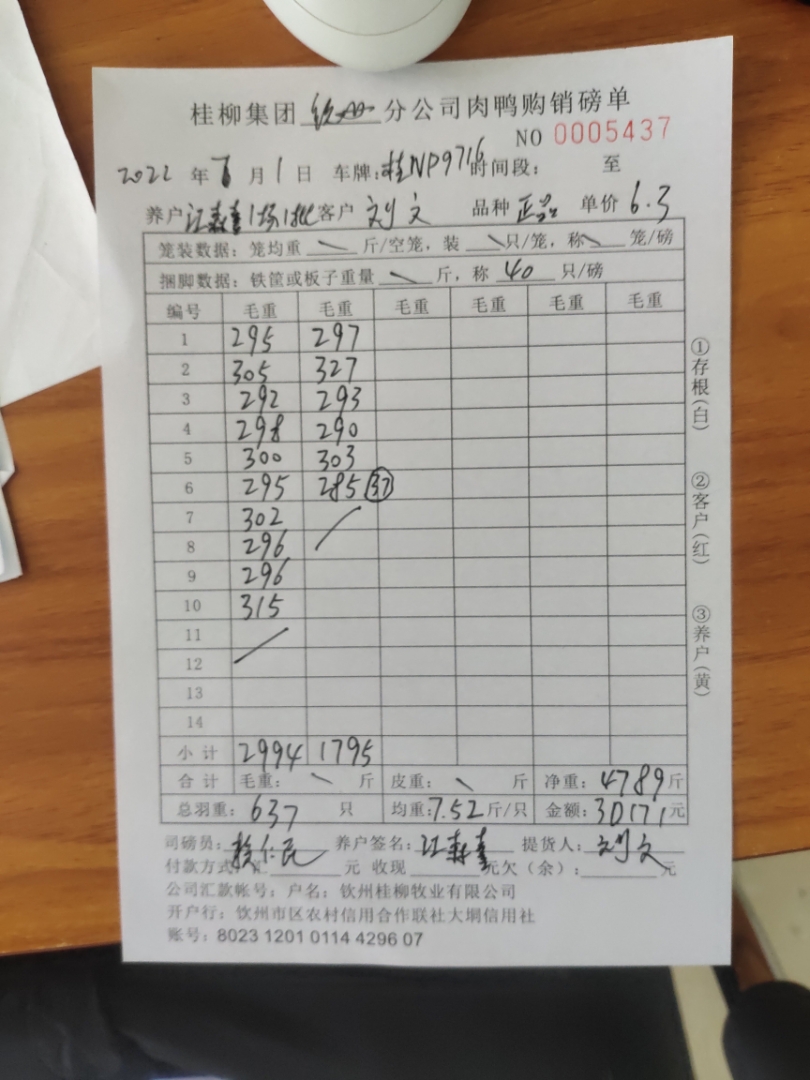 桂柳集团 钦州 分公司肉鸭购销磅单
NO 0005437
2022 年 7 月 1 日 车牌:桂NP9716 时间段: 至
养户 江森 1场1批 客户 刘文 品种 正品 单价 6.3
笼装数据: 笼均重 \ 斤/空笼, 装 \ 只/笼, 称 \ 笼/磅
捆脚数据: 铁筐或板子重量 \ 斤, 称 40 只/磅
编号 毛重 毛重 毛重 毛重 毛重 毛重
1 295 297
2 305 327
3 292 293
4 298 290
5 300 303
6 295 285 37
7 302
8 296
9 296
10 315
11
12
13
14
小计 2994 1795
合计 毛重: \ 斤 皮重: \ 斤 净重: 4789 斤
总羽重: 637 只 均重: 7.52 斤/只 金额: 30171 元
司磅员: 仁民 养户签名: 江森 提货人: 刘文
付款方式: 汇 元 收现 元欠(余): 元
公司汇款帐号: 户名: 钦州桂柳牧业有限公司
开户行: 钦州市区农村信用合作联社大垌信用社
账号: 8023 1201 0114 4296 07
①存根(白)
②客户(红)
③养户(黄)